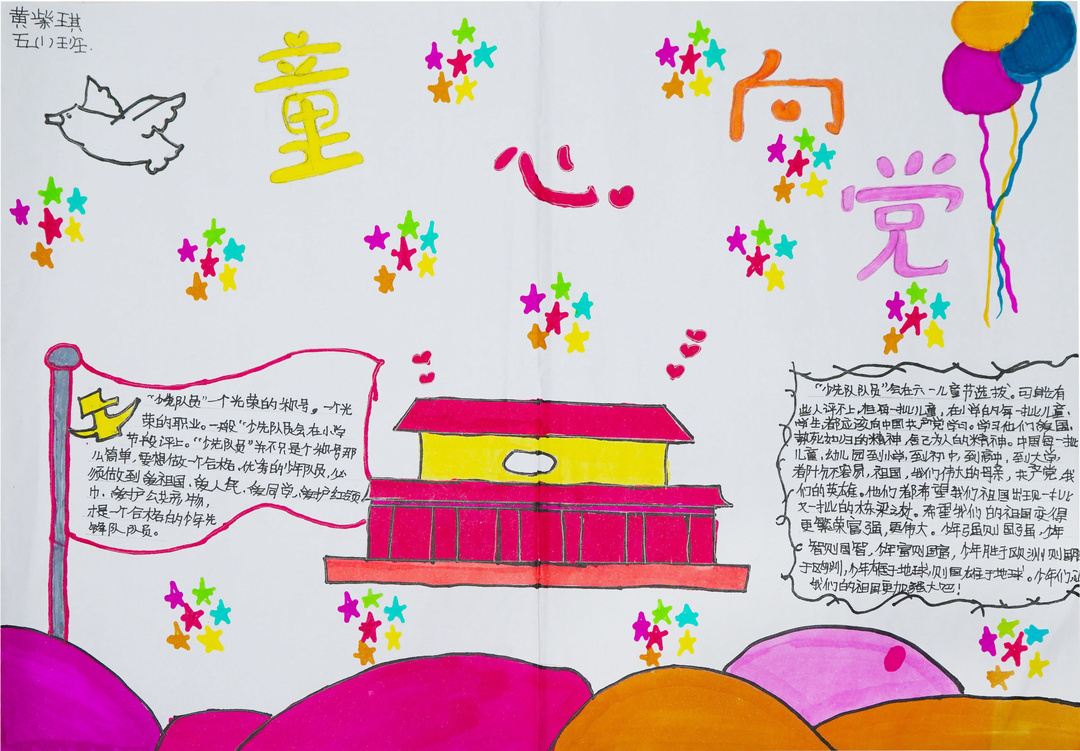 黄紫琪
五(1)班.
童心向党
“少先队队员”一个光荣的称号。一个光
荣的职业。一般“少先队队员会在小学
节段评上。“少先队员”并不只是个称号那
么简单,要想做一个合格,优秀的少年队员,必
须做到爱祖国、爱人民、爱同学、爱护红领
巾、爱护公共财物,
才是一个合格的少年先
锋队队员。
“少先队队员”会在六一儿童节选拔。可能也有
些人评不上,但每一批儿童,在小学的每一批儿童、
学生,都应该向中国共产党学习。学习他们爱国、
视死如归的精神,舍己为人的精神。中国每一批
儿童,幼儿园到小学,到初中,到高中,到大学,
都十分不容易,祖国,我们伟大的母亲,共产党,我
们的英雄。他们都希望我们祖国出现一批
又一批的栋梁之材。希望我们的祖国变得
更繁荣富强,更伟大。少年强则国强,少年
智则国智,少年富则国富,少年胜于欧洲则国胜
于欧洲,少年雄于地球,则国雄于地球。少年们让
我们的祖国更加强大吧!